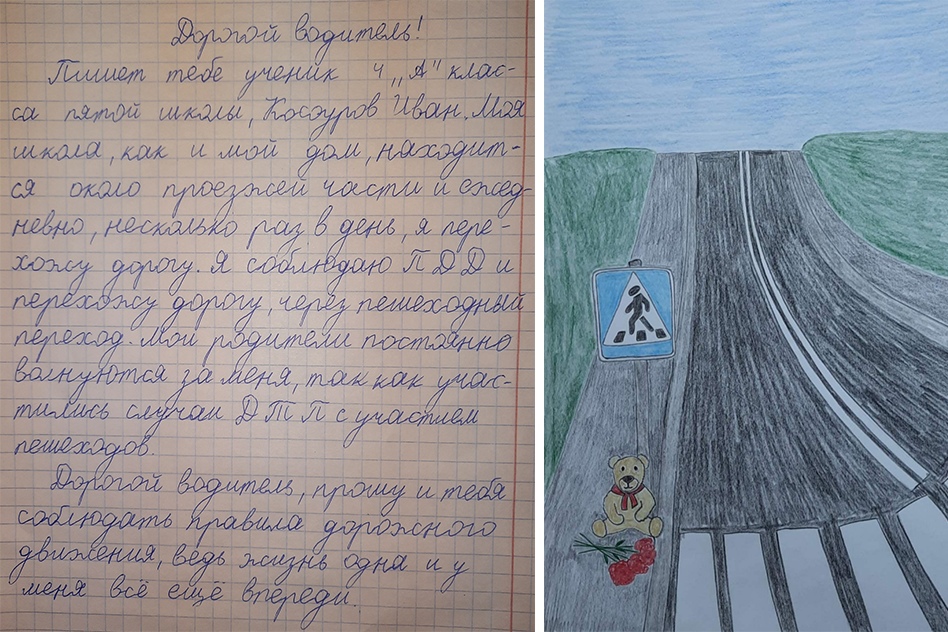 Дорогой водитель!
Пишет тебе ученик 4 „А" клас-
са пятой школы, Косоуров Иван. Моя
школа, как и мой дом, находит-
ся около проезжей части и ежед-
невно, несколько раз в день, я пере-
хожу дорогу. Я соблюдаю ПДД и
перехожу дорогу, через пешеходный
переход. Мои родители постоянно
волнуются за меня, так как учас-
тились случаи ДТП с участием
пешеходов.
Дорогой водитель, прошу и тебя
соблюдать правила дорожного
движения, ведь жизнь одна и у
меня всё ещё впереди.